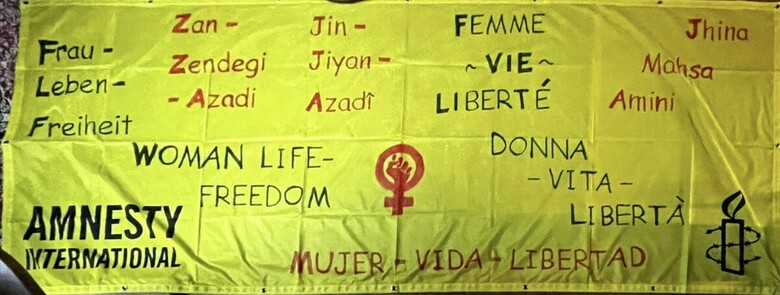 Frau -
Leben -
Freiheit
Zan -
Zendegi
- Azadi
Jin -
Jiyan -
Azadî
FEMME
~ VIE ~
LIBERTÉ
Jhina
Mahsa
Amini
WOMAN LIFE -
FREEDOM
DONNA
- VITA -
LIBERTÀ
AMNESTY
INTERNATIONAL
MUJER - VIDA - LIBERTAD